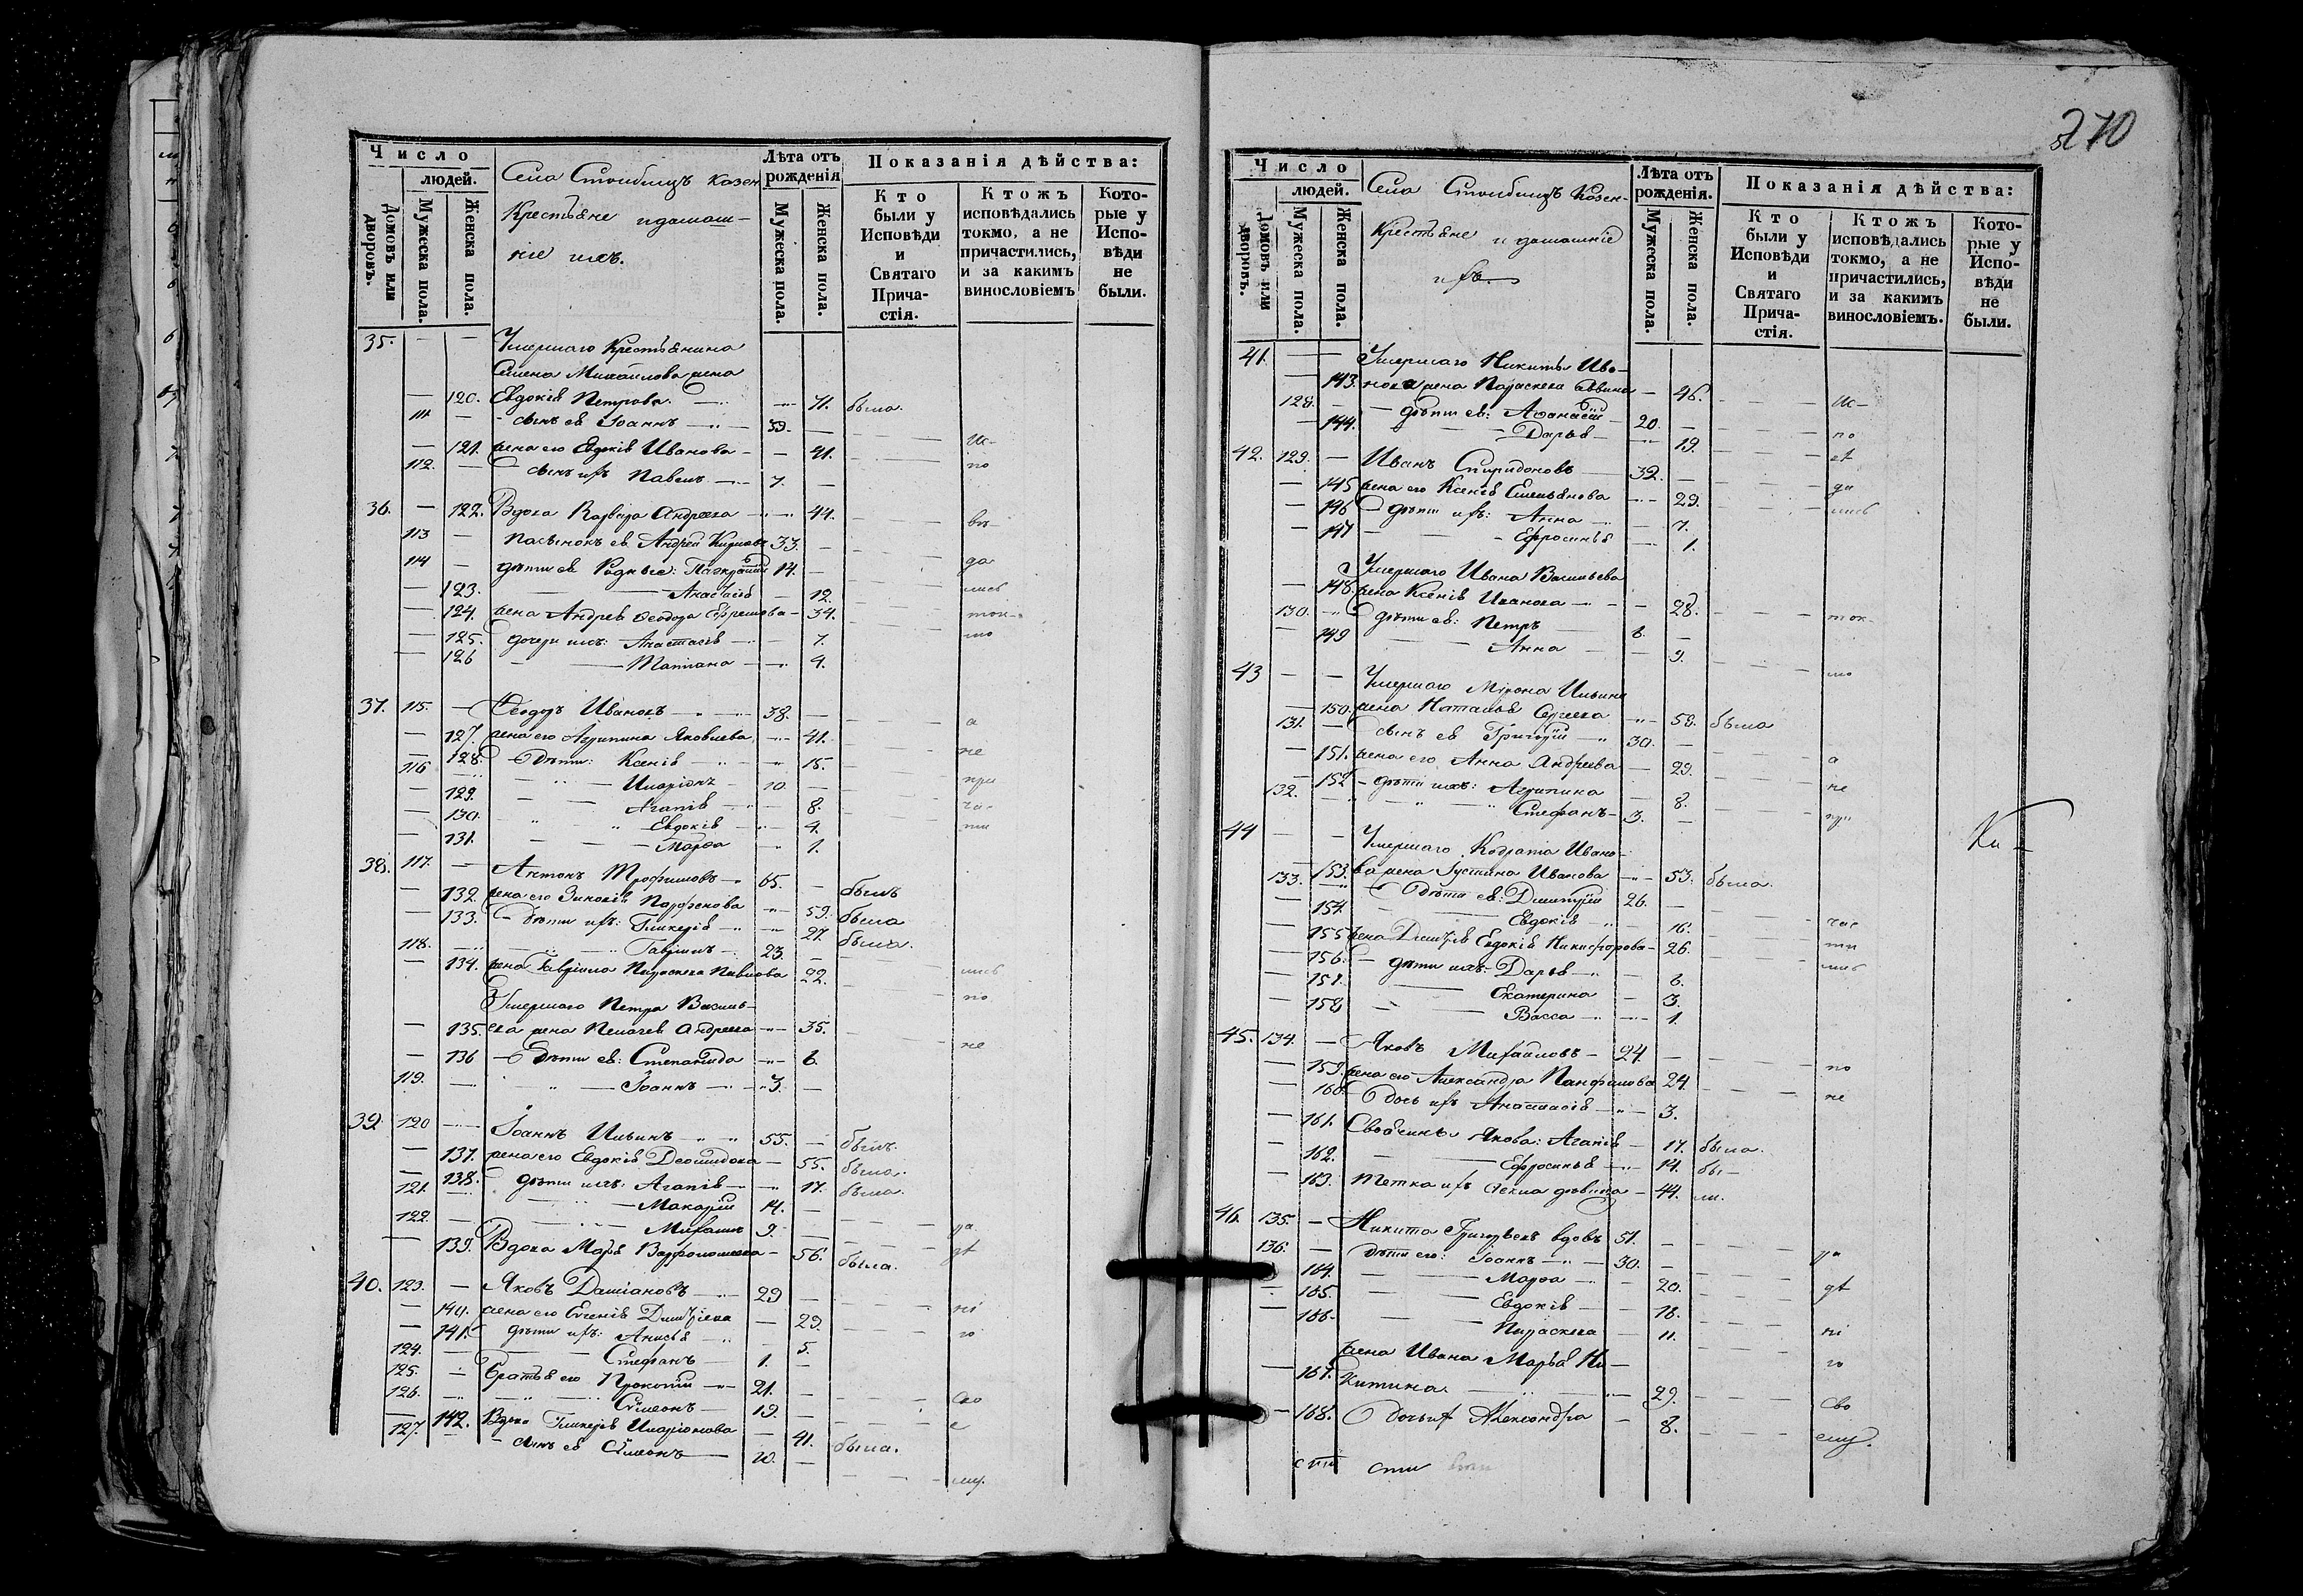 270
Число
людей.
Домовъ или дворовъ.
Мужеска пола.
Женска пола.
Села Столбищъ казен
Крестьяне и домаш-
ніе ихъ.
Лѣта отъ рожденія
Мужеска пола.
Женска пола.
Показанія дѣйства:
Кто были у Исповѣди и Святаго Прича-стія.
Ктожъ исповѣдались токмо, а не причастились, и за какимъ винословіемъ
Кото-рые у Испо-вѣди не были.
35. Умершаго Крестьянина
Семена Михайлова жена
120. Евдокія Петрова. 71. была.
111 сынъ ея Іоаннъ 39.
121. жена его Евдокія Иванова 41. Ис-
112. сынъ ихъ Павелъ 7. по
36. 122. Вдова Варвара Андреева 44. вѣ-
113 пасынокъ ея Андрей 33.
114 дѣти ея Родные: Панкратій 14. да
123. Анастасія 12. лись
124. жена Андрея Ѳеодора Ефремова 34. ток-
125. дочери ихъ: Анастасія 7. мо
126 Татіана 4.
37. 115. Ѳеодоръ Ивановъ 38.
127. жена его Агрипина Яковлева 41. а
128. дѣти: Ксенія 15. не
116 Иларіонъ 10. при
129. Агапія 8. ча-
130. Евдокія 4. сти
131. Марѳа 1.
38. 117. Антонъ Трофимовъ 65. былъ
132. жена его Зиновія Парфенова 59. была
133. дѣти ихъ: Гликерія 27. была.
118. Гавріилъ 23.
134. жена Гавріила Параскева Павлова 22. лись
Умершаго Петра Василь-
135. ева жена Пелагея Андреева 35. по
136 дѣти ея: Степанида 6. не
119. Іоаннъ 3.
39. 120 Іоаннъ Ильинъ 55. былъ.
137. жена его Евдокія Деомидова 55. была.
138. дѣти ихъ: Агапія 17. была.
121. Макарій 14.
122. Михаилъ 9. ра
139. Вдова Марья Варфоломеева 56. была. дѣ
40. 123. Яковъ Даміановъ 29
140. жена его Евгенія Дмитріева 29. ні
141. дѣти ихъ: Анисья 5. ю
124. Стефанъ 1.
125. Братья его Прокопій 21.
126. Сѵмеонъ 19. сво
142. Вдова Гликерія Иларіонова 41. была. е
127. сынъ ея Сѵмеонъ 10. му.
Число
людей.
Домовъ или дворовъ.
Мужеска пола.
Женска пола.
Села Столбищъ Казен-
Крестьяне и домашніе
ихъ.
Лѣта отъ рожденія.
Мужеска пола.
Женска пола.
Показанія дѣйства:
Кто были у Исповѣди и Святаго Прича-стія.
Ктожъ исповѣдались токмо, а не причастились, и за какимъ винословіемъ.
Кото-рые у Испо-вѣди не были.
41. Умершаго Никиты Ива-
143. нова жена Параскева Саввина 46. Ис-
128. дѣти ея: Аѳанасій 20.
144. Дарья 19. по
42. 129. Иванъ Спиридоновъ 32. вѣ
145 жена его Ксенія Емельянова 29. да
146 дѣти ихъ: Анна 7. лись
147 Ефросинья 1.
Умершаго Ивана Васильева
148. жена Ксенія Иванова 28.
130. дѣти ея: Петръ 6. ток-
149 Анна 9.
43 Умершаго Мірона Ильина мо
150. жена Наталья Сергеева 58. была
131. сынъ ея Григорій 30.
151. жена его Анна Андреева 29. а
152 дѣти ихъ: Агрипина 8. не
132. Стефанъ 3. при
44 Умершаго Кодрата Ивано-
153. ва жена Іустина Иванова 53. была.
133. дѣти ея: Димитрій 26.
154. Евдокія 16. час
155 жена Дмитрія Евдокія Никифорова 26. ти
156. дѣти ихъ: Дарья 6. лись
157. Екатерина 3.
158 Васса 1.
45. 134. Яковъ Михайловъ 24.
159. жена его Александра Панфилова 24. по
160. дочь ихъ Анастасія 3. не
161. Якова: Агапія 17. была.
162. Ефросинья 14. бы-
163. Тетка ихъ Ѳекла дѣвица 44. ли.
46. 135. Никита Григорьевъ вдовъ 51.
136. дѣти его: Іоаннъ 30. ра
164. Марѳа 20.
165. Евдокія 18. дѣ
166. Параскева 11. ні
жена Ивана Марья Ни- ю
167. китина. 29. сво
168. дочь ихъ Александра 8. ему.
сти